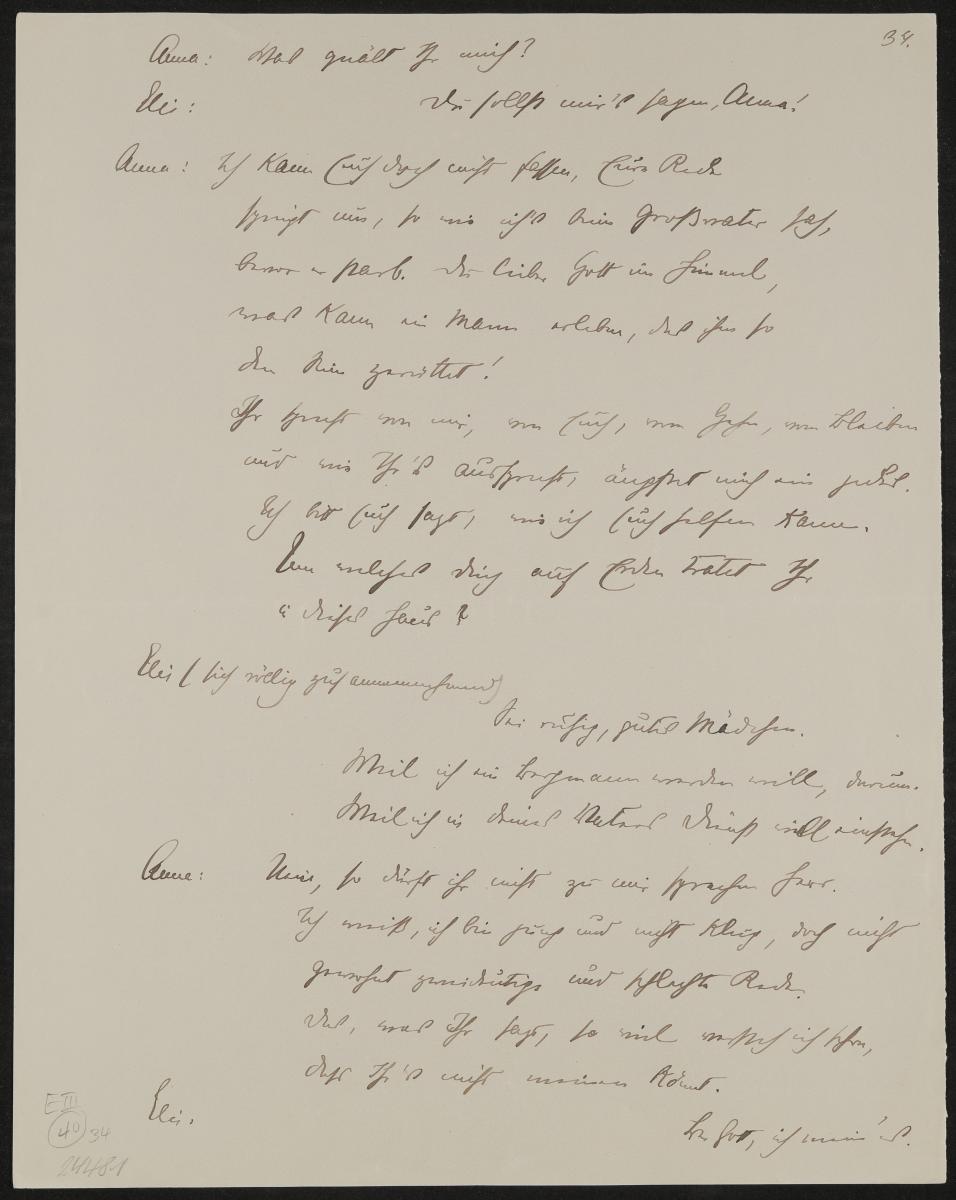 34.
Anna: Was quält Ihr mich?
Elis: Du sollst mir's sagen, Anna!
Anna: Ich kann Euch doch nicht fassen, Eure Rede
springt um, so wie ich's beim Großvater sah,
bevor er starb. Du lieber Gott im Himmel,
was kann ein Mann erleben, das ihm so
den Sinn zerrüttet!
Ihr sprecht von mir, von Euch, vom Gehn, vom Bleiben
und wie Ihr's aussprecht, ängstet mich ein jedes.
Ich bitt Euch sagt, wie ich Euch helfen kann.
Um welches Ding auf Erden tratet Ihr
in dieses Haus?
Elis (sich völlig zusammennehmend)
Sei ruhig, gutes Mädchen.
Weil ich ein Bergmann werden will, darum.
Weil ich in deines Vaters Dienst will einstehn.
Anna: Nein, so dürft ihr nicht zu mir sprechen Herr.
Ich weiß, ich bin jung und nicht klug, doch nicht
gewohnt zweideutige und schlechte Rede.
Das, was Ihr sagt, so viel versteh ich schon,
dass Ihr's nicht meinen könnt.
Elis.
Bei Gott, ich mein' es.
E III
40 34
24481